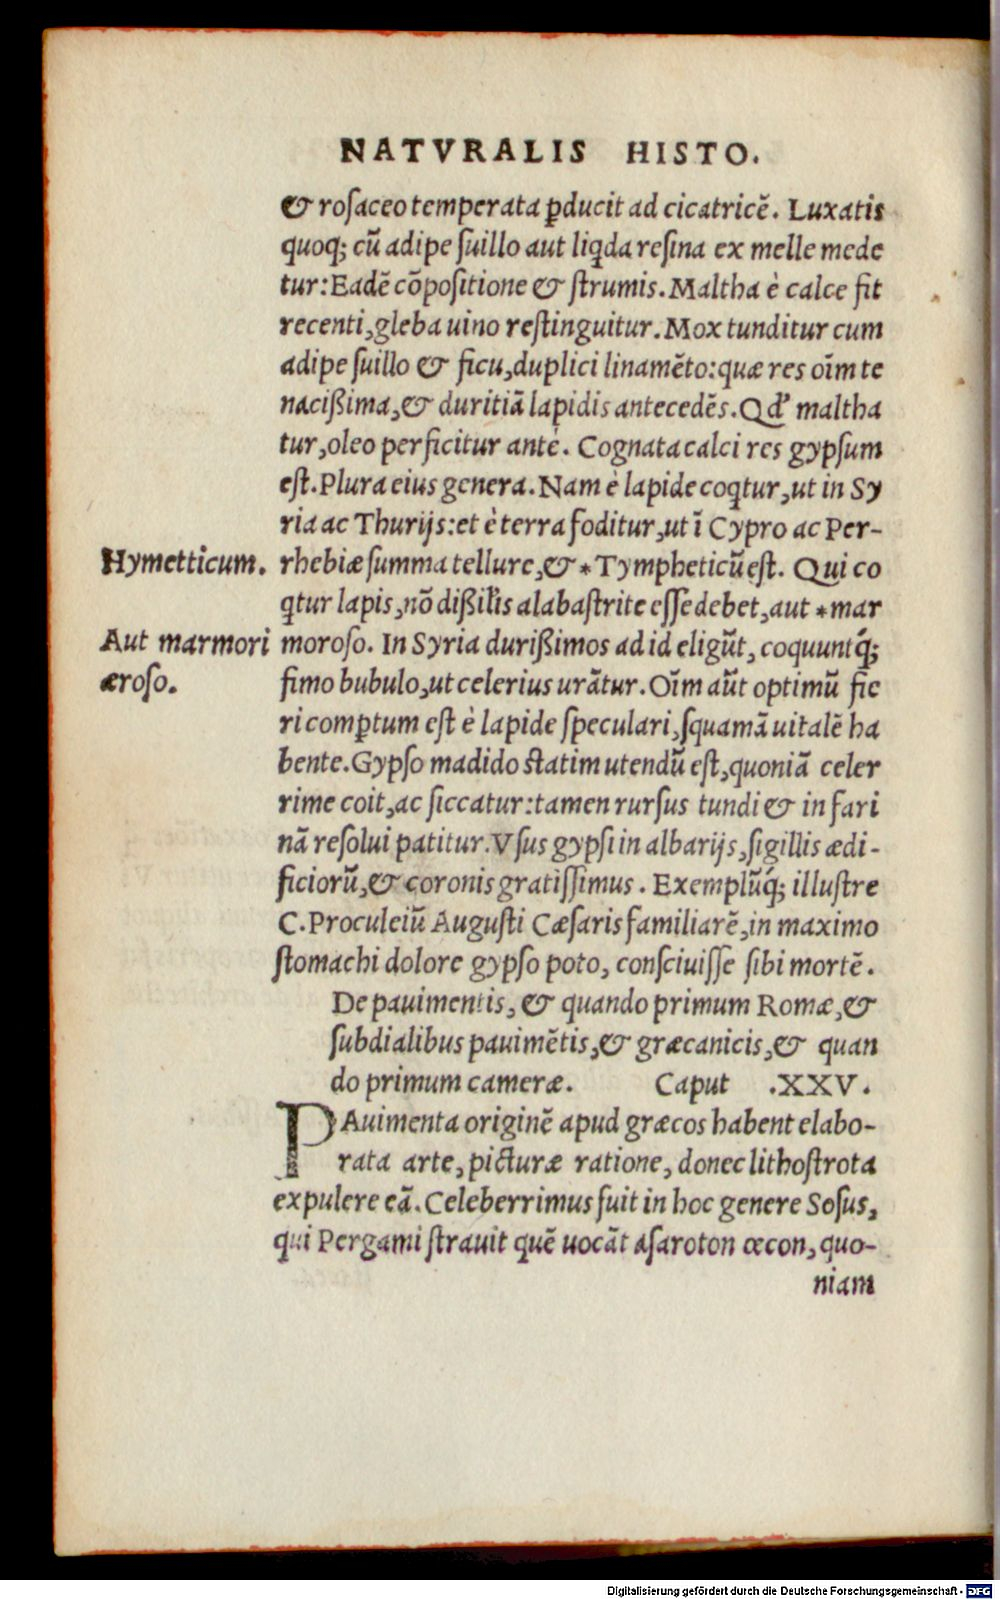 NATVRALIS HISTO.
& rosaceo temperata ꝑducit ad cicatricē. Luxatis
quoq; cū adipe suillo aut liqda resina ex melle mede
tur: Eadē cōpositione & strumis. Maltha è calce fit
recenti, gleba uino restinguitur. Mox tunditur cum
adipe suillo & ficu, duplici linamēto: quæ res oīm te
nacißima, & duritiā lapidis antecedēs. Qd' maltha
tur, oleo perficitur ante. Cognata calci res gypsum
est. Plura eius genera. Nam è lapide coqtur, ut in Sy
ria ac Thurijs: et è terra foditur, ut ī Cypro ac Per-
Hymetticum. rhebiæ summa tellure, & *Tympheticū est. Qui co
qtur lapis, nō dißilis alabastrite esse debet, aut *mar
Aut marmori moroso. In Syria durißimos ad id eligūt, coquuntq́;
æroso. fimo bubulo, ut celerius urātur. Oīm aūt optimū fie
ri comptum est è lapide speculari, squamā uitalē ha
bente. Gypso madido statim utendū est, quoniā celer
rime coit, ac siccatur: tamen rursus tundi & in fari
nā resolui patitur. Vsus gypsi in albarijs, sigillis ædi-
ficiorū, & coronis gratissimus. Exemplūq́; illustre
C. Proculeiū Augusti Cæsaris familiarē, in maximo
stomachi dolore gypso poto, consciuisse sibi mortē.
De pauimentis, & quando primum Romæ, &
subdialibus pauimētis, & græcanicis, & quan
do primum cameræ. Caput .XXV.
PAuimenta originē apud græcos habent elabo-
rata arte, picturæ ratione, donec lithostrota
expulere eā. Celeberrimus fuit in hoc genere Sosus,
qui Pergami strauit quē uocāt asaroton œcon, quo-
niam
Digitalisierung gefördert durch die Deutsche Forschungsgemeinschaft - DFG